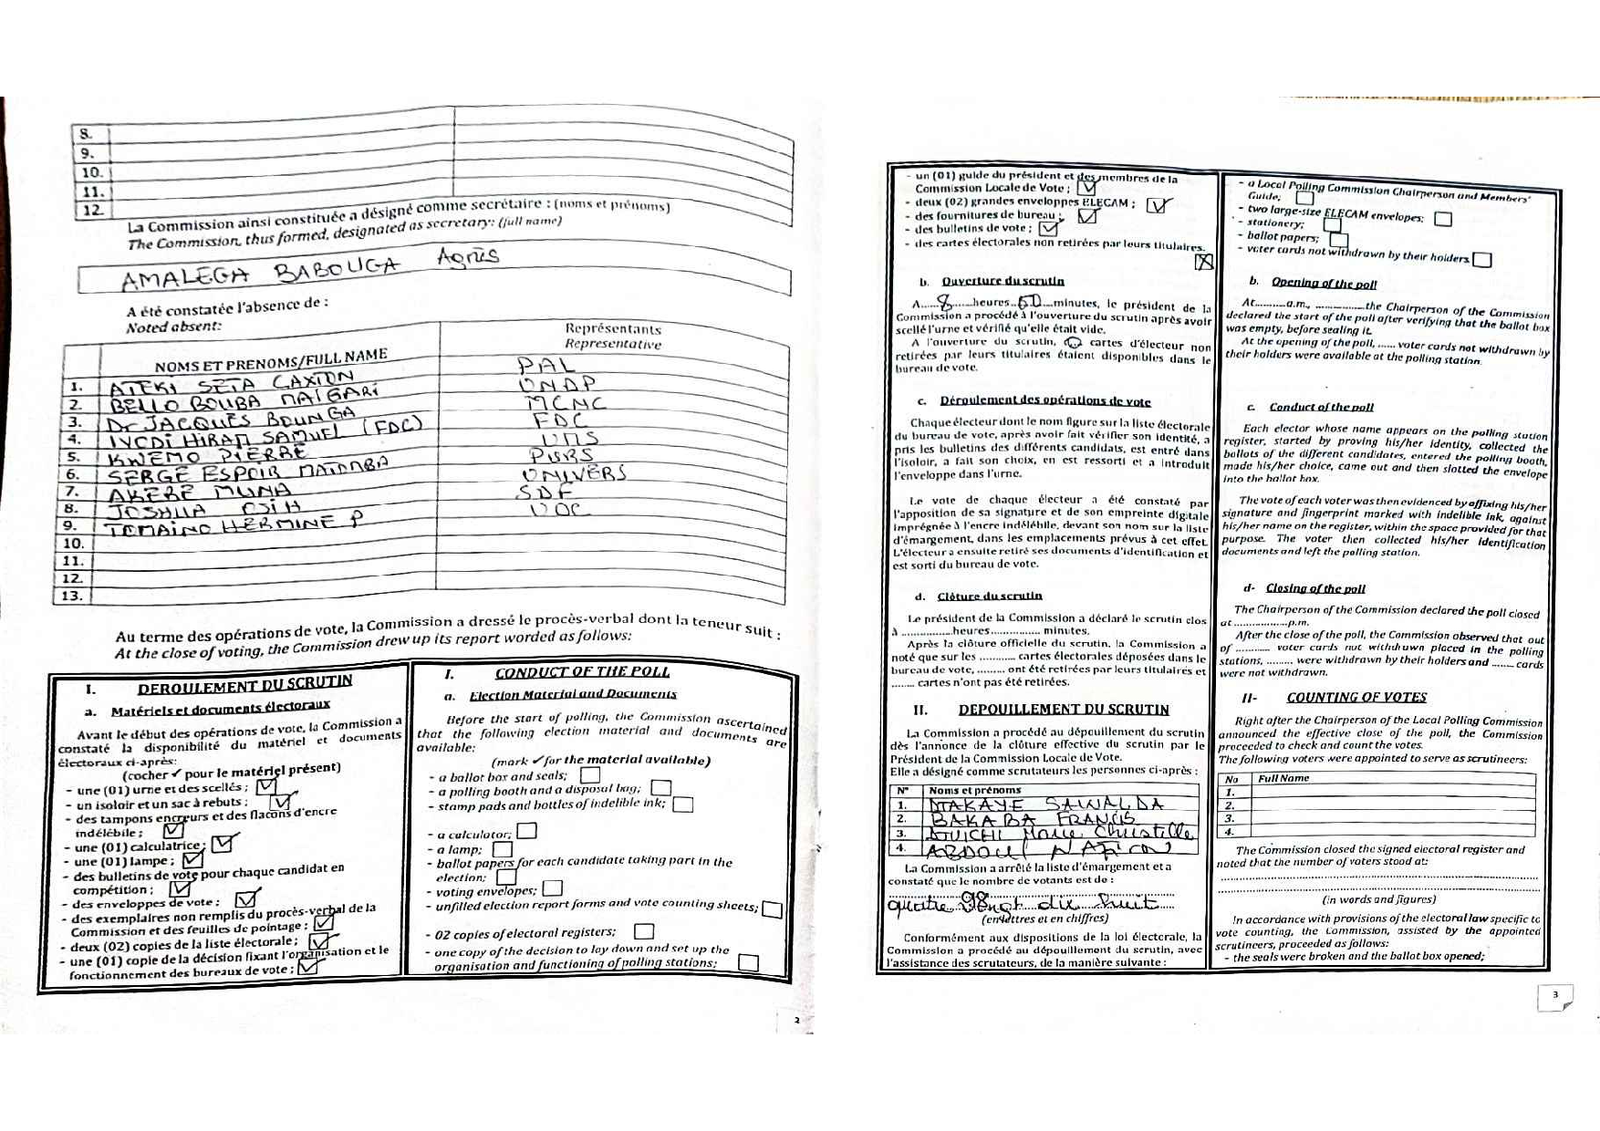 8.
9.
10.
11.
12.
La Commission ainsi constituée a désigné comme secrétaire : (noms et prénoms)
The Commission, thus formed, designated as secretary: (full name)
AMALEGA BABOUGA Agnès
A été constatée l'absence de :
Noted absent:
NOMS ET PRENOMS/FULL NAME
Représentants
Representative
1. ATEKI SETA CAXTON PAL
2. BELLO BOUBA MAIGARI UNDP
3. Dr JACQUES BOUNGA MCNC
4. IYODI HIRAM SAMUEL (FDC) FDC
5. KWEMO PIERRE UMS
6. SERGE ESPOIR MATOMBA PURS
7. AKERE MUNA UNIVERS
8. JOSHUA OSIH SDF
9. TOMAINO HERMINE P UDC
10.
11.
12.
13.
Au terme des opérations de vote, la Commission a dressé le procès-verbal dont la teneur suit :
At the close of voting, the Commission drew up its report worded as follows:
I. DEROULEMENT DU SCRUTIN
a. Matériels et documents électoraux
Avant le début des opérations de vote, la Commission a
constaté la disponibilité du matériel et documents
électoraux ci-après:
(cocher ✓ pour le matériel présent)
- une (01) urne et des scellés ; ☑
- un isoloir et un sac à rebuts ; ☑
- des tampons encreurs et des flacons d'encre
indélébile ; ☑
- une (01) calculatrice ; ☑
- une (01) lampe ; ☑
- des bulletins de vote pour chaque candidat en
compétition ; ☑
- des enveloppes de vote ; ☑
- des exemplaires non remplis du procès-verbal de la
Commission et des feuilles de pointage ; ☑
- deux (02) copies de la liste électorale ; ☑
- une (01) copie de la décision fixant l'organisation et le
fonctionnement des bureaux de vote ; ☑
I. CONDUCT OF THE POLL
a. Election Material and Documents
Before the start of polling, the Commission ascertained
that the following election material and documents are
available:
(mark ✓ for the material available)
- a ballot box and seals; ☐
- a polling booth and a disposal bag; ☐
- stamp pads and bottles of indelible ink; ☐
- a calculator; ☐
- a lamp; ☐
- ballot papers for each candidate taking part in the
election; ☐
- voting envelopes; ☐
- unfilled election report forms and vote counting sheets; ☐
- 02 copies of electoral registers; ☐
- one copy of the decision to lay down and set up the
organisation and functioning of polling stations; ☐
2
- un (01) guide du président et des membres de la
Commission Locale de Vote ; ☑
- deux (02) grandes enveloppes ELECAM ; ☑
- des fournitures de bureau ; ☑
- des bulletins de vote ; ☑
- des cartes électorales non retirées par leurs titulaires.
☒
b. Ouverture du scrutin
A......8......heures..00..minutes, le président de la
Commission a procédé à l'ouverture du scrutin après avoir
scellé l'urne et vérifié qu'elle était vide.
A l'ouverture du scrutin, 0 cartes d'électeur non
retirées par leurs titulaires étaient disponibles dans le
bureau de vote.
c. Déroulement des opérations de vote
Chaque électeur dont le nom figure sur la liste électorale
du bureau de vote, après avoir fait vérifier son identité, a
pris les bulletins des différents candidats, est entré dans
l'isoloir, a fait son choix, en est ressorti et a introduit
l'enveloppe dans l'urne.
Le vote de chaque électeur a été constaté par
l'apposition de sa signature et de son empreinte digitale
imprégnée à l'encre indélébile, devant son nom sur la liste
d'émargement, dans les emplacements prévus à cet effet.
L'électeur a ensuite retiré ses documents d'identification et
est sorti du bureau de vote.
d. Clôture du scrutin
Le président de la Commission a déclaré le scrutin clos
à ...............heures.............. minutes.
Après la clôture officielle du scrutin, la Commission a
noté que sur les .......... cartes électorales déposées dans le
bureau de vote, ........ ont été retirées par leurs titulaires et
........ cartes n'ont pas été retirées.
II. DEPOUILLEMENT DU SCRUTIN
La Commission a procédé au dépouillement du scrutin
dès l'annonce de la clôture effective du scrutin par le
Président de la Commission Locale de Vote.
Elle a désigné comme scrutateurs les personnes ci-après :
N° Noms et prénoms
1. NTAKAYE SAWALDA
2. BAKABA FRANCIS
3. Marie Christelle
4. ABDOUL
La Commission a arrêté la liste d'émargement et a
constaté que le nombre de votants est de :
quatre vingt dix huit
(en lettres et en chiffres)
Conformément aux dispositions de la loi électorale, la
Commission a procédé au dépouillement du scrutin, avec
l'assistance des scrutateurs, de la manière suivante :
- a Local Polling Commission Chairperson and Members'
Guide; ☐
- two large-size ELECAM envelopes; ☐
- stationery; ☐
- ballot papers; ☐
- voter cards not withdrawn by their holders ☐
b. Opening of the poll
At..........a.m., ...............the Chairperson of the Commission
declared the start of the poll after verifying that the ballot box
was empty, before sealing it.
At the opening of the poll, ...... voter cards not withdrawn by
their holders were available at the polling station.
c. Conduct of the poll
Each elector whose name appears on the polling station
register, started by proving his/her identity, collected the
ballots of the different candidates, entered the polling booth,
made his/her choice, came out and then slotted the envelope
into the ballot box.
The vote of each voter was then evidenced by affixing his/her
signature and fingerprint marked with indelible ink, against
his/her name on the register, within the space provided for that
purpose. The voter then collected his/her identification
documents and left the polling station.
d- Closing of the poll
The Chairperson of the Commission declared the poll closed
at .................p.m.
After the close of the poll, the Commission observed that out
of .......... voter cards not withdrawn placed in the polling
stations, ......... were withdrawn by their holders and ....... cards
were not withdrawn.
II- COUNTING OF VOTES
Right after the Chairperson of the Local Polling Commission
announced the effective close of the poll, the Commission
proceeded to check and count the votes.
The following voters were appointed to serve as scrutineers:
No Full Name
1.
2.
3.
4.
The Commission closed the signed electoral register and
noted that the number of voters stood at:
(in words and figures)
In accordance with provisions of the electoral law specific to
vote counting, the Commission, assisted by the appointed
scrutineers, proceeded as follows:
- the seals were broken and the ballot box opened;
3